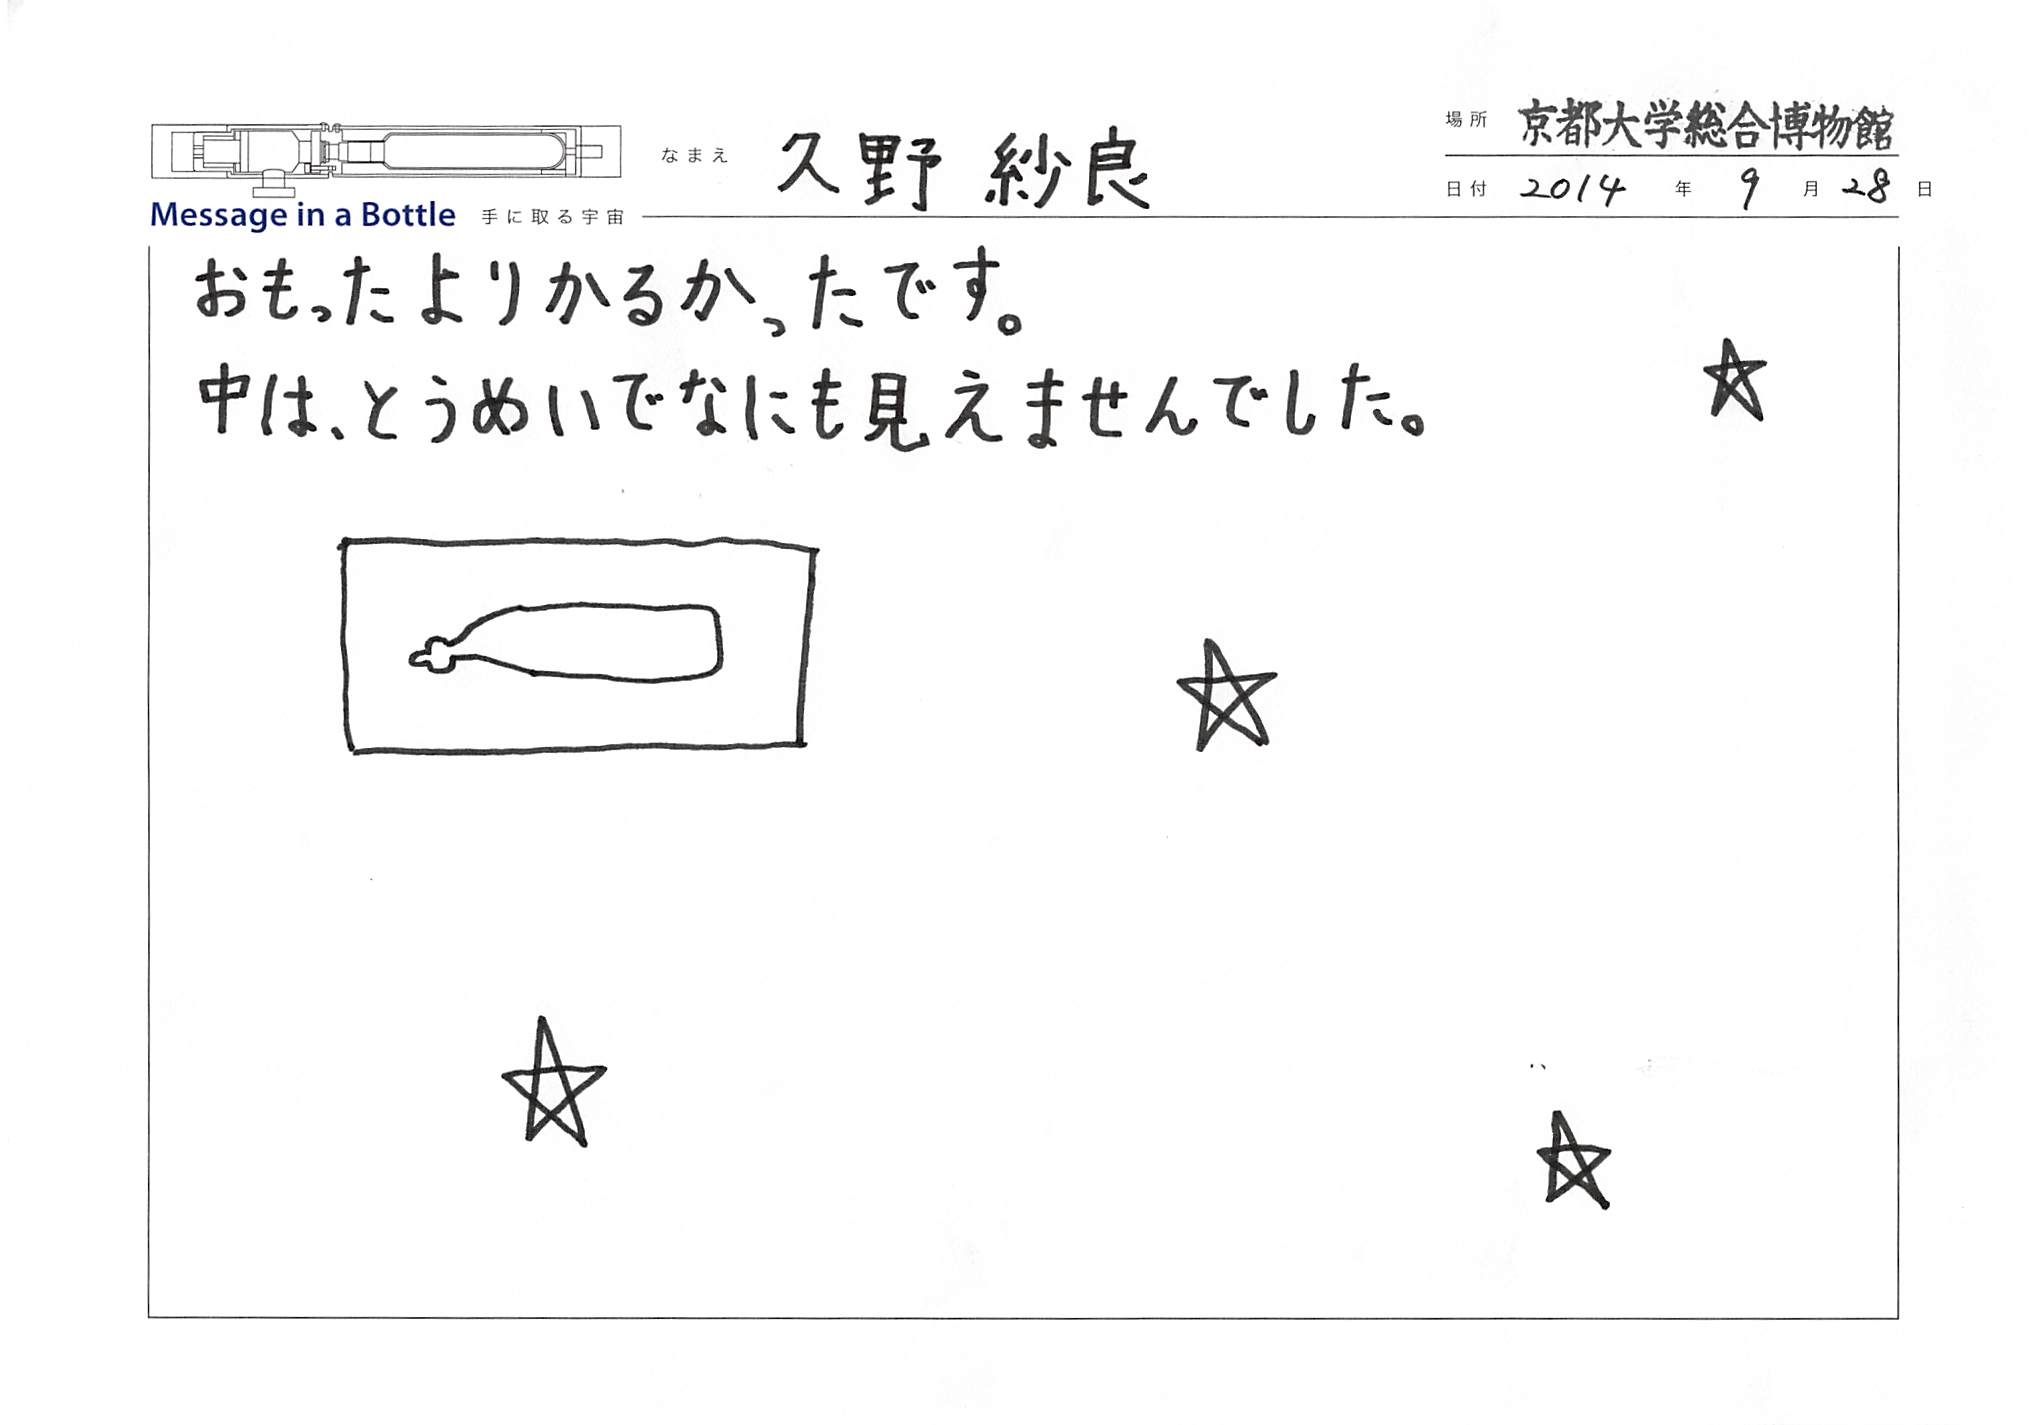 なまえ 久野 紗良
場所 京都大学総合博物館
日付 2014 年 9 月 28 日
Message in a Bottle 手に取る宇宙
おもったよりかるかったです。
中は、とうめいでなにも見えませんでした。